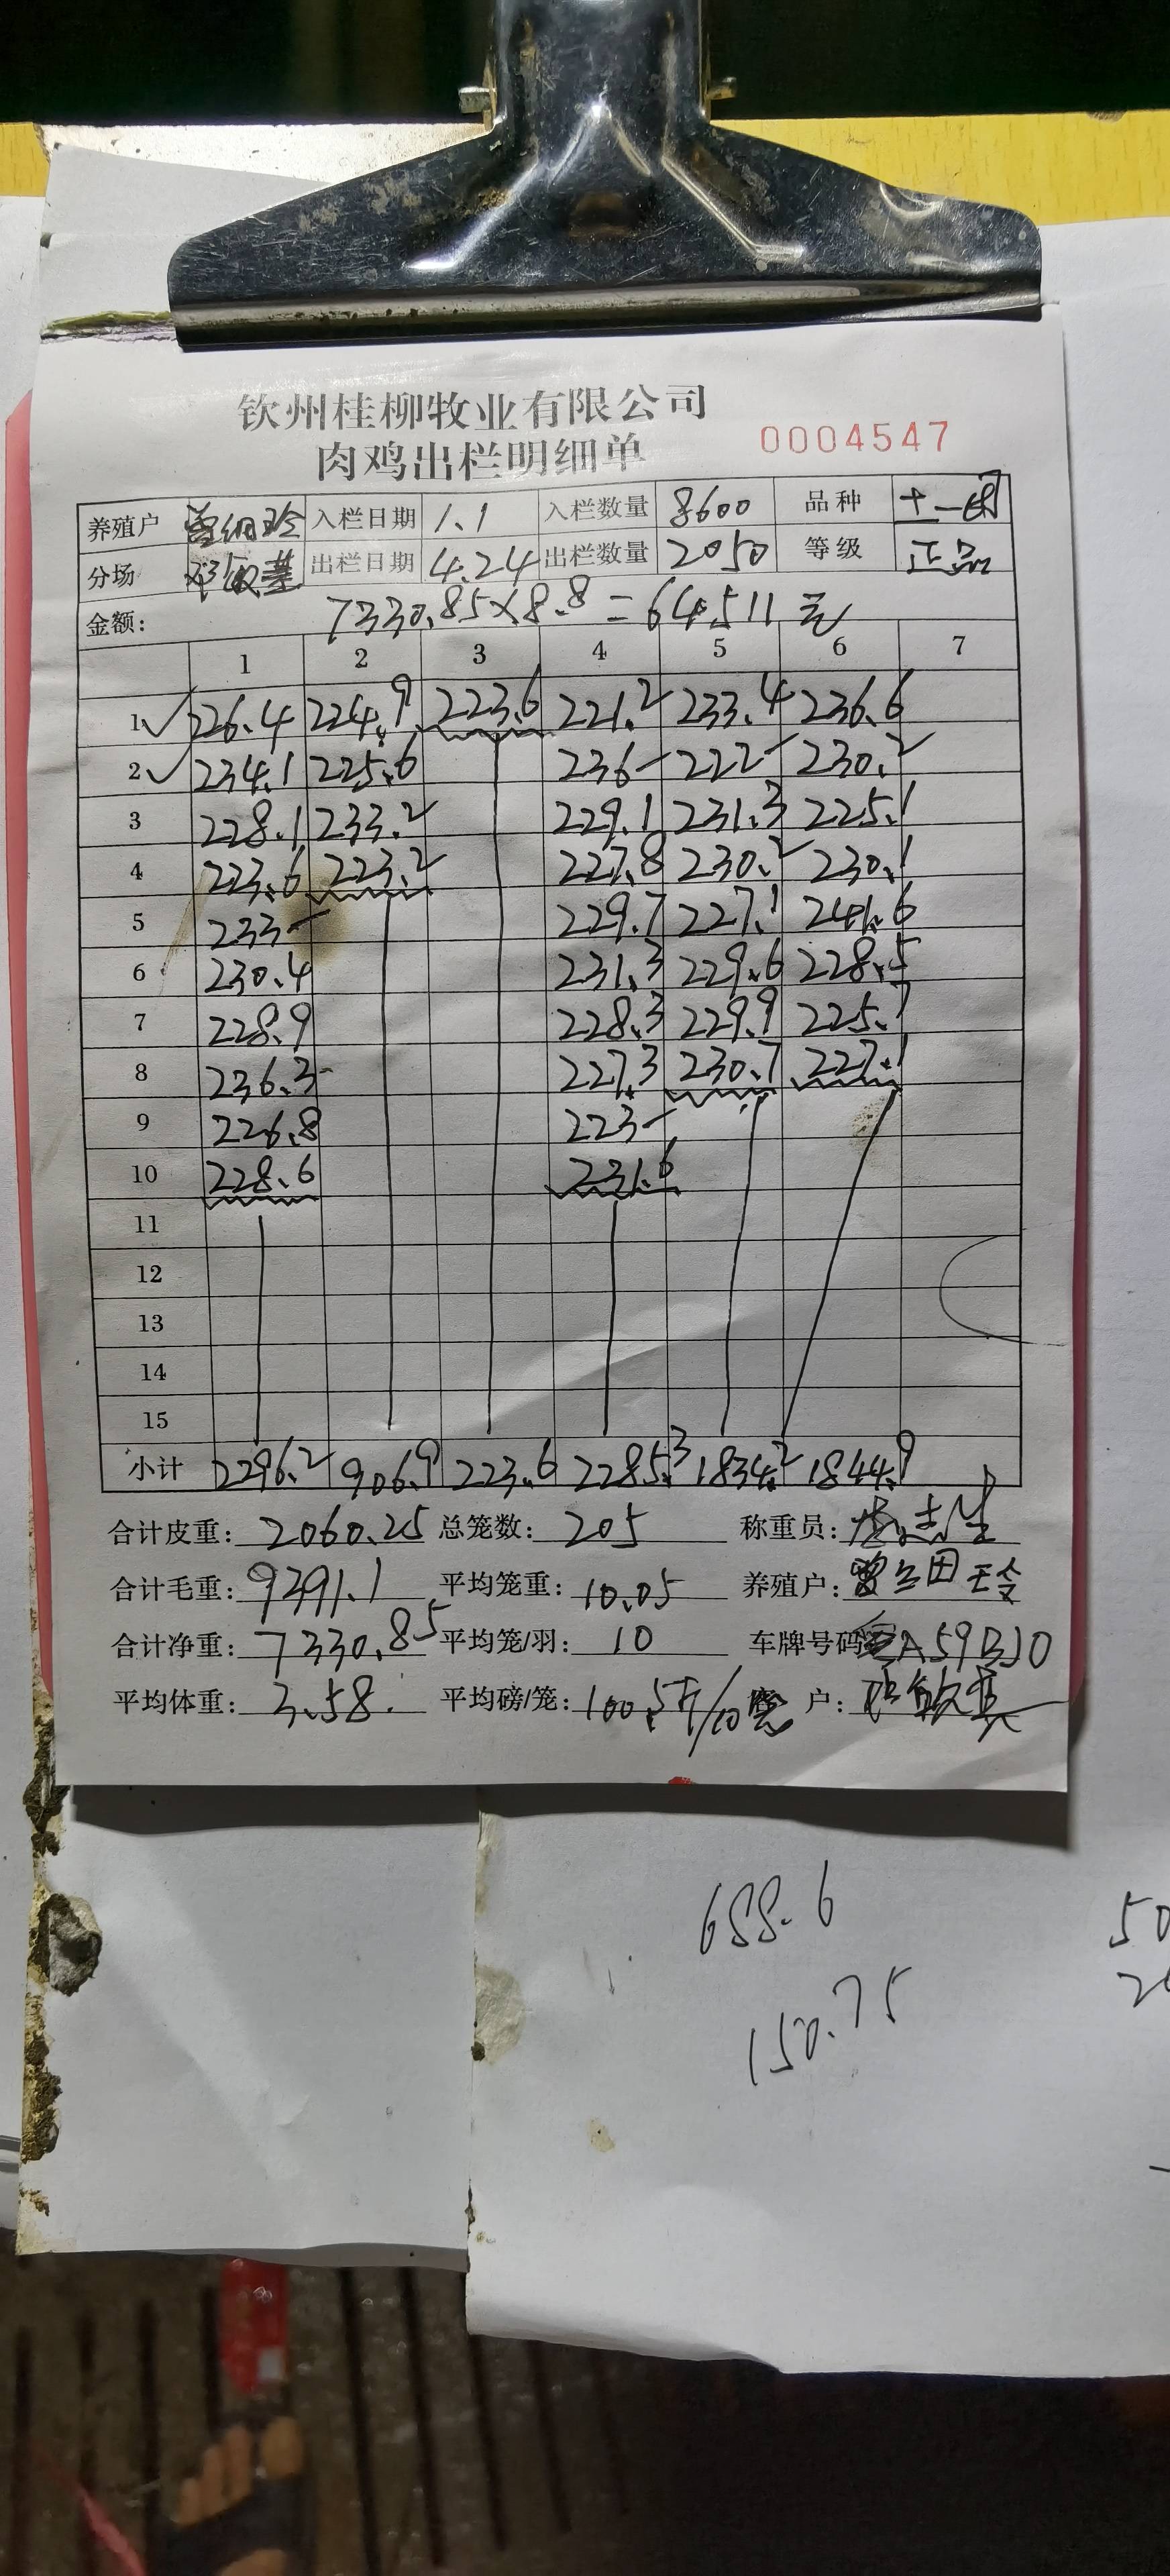 钦州桂柳牧业有限公司
肉鸡出栏明细单 0004547
养殖户 入栏日期 1.1 入栏数量 8600 品种 十一
分场 出栏日期 4.24 出栏数量 2050 等级 正品
金额: 7330.85×8.8=64511元
1 2 3 4 5 6 7
1 226.4 224.9 223.6 221.2 233.4 236.6
2 234.1 225.6 236- 222- 230.2
3 228.1 233.2 229.1 231.3 225.1
4 223.6 223.2 227.8 230.2 230.1
5 233- 229.7 227.1 241.6
6 230.4 231.3 229.6 228.5
7 228.9 228.3 229.9 225.7
8 236.3 227.3 230.7 227.1
9 226.8 223-
10 228.6 231.6
11
12
13
14
15
小计 2296.2 906.9 223.6 2285.3 1834.2 1844.9
合计皮重: 2060.25 总笼数: 205 称重员:
合计毛重: 9391.1 平均笼重: 10.05 养殖户: 曾细玲
合计净重: 7330.85 平均笼/羽: 10 车牌号码 A59BJ0
平均体重: 3.58. 平均磅/笼: 100.5斤/10笼 户:
688.6
150.75
50